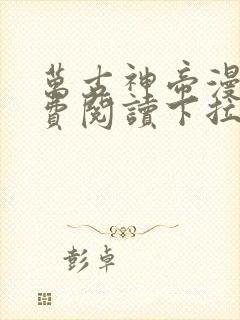 萬古神帝漫
費閱讀下拉
彭卓